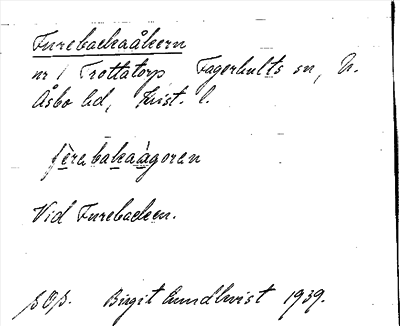 Furebackaåkern
nr 1 Trottatorp, Fagerhults sn, N.
Åsbo hd, Krist. l.
fèrabakaågoren
Vid Furebacken.
Birgit Lundkvist 1939.